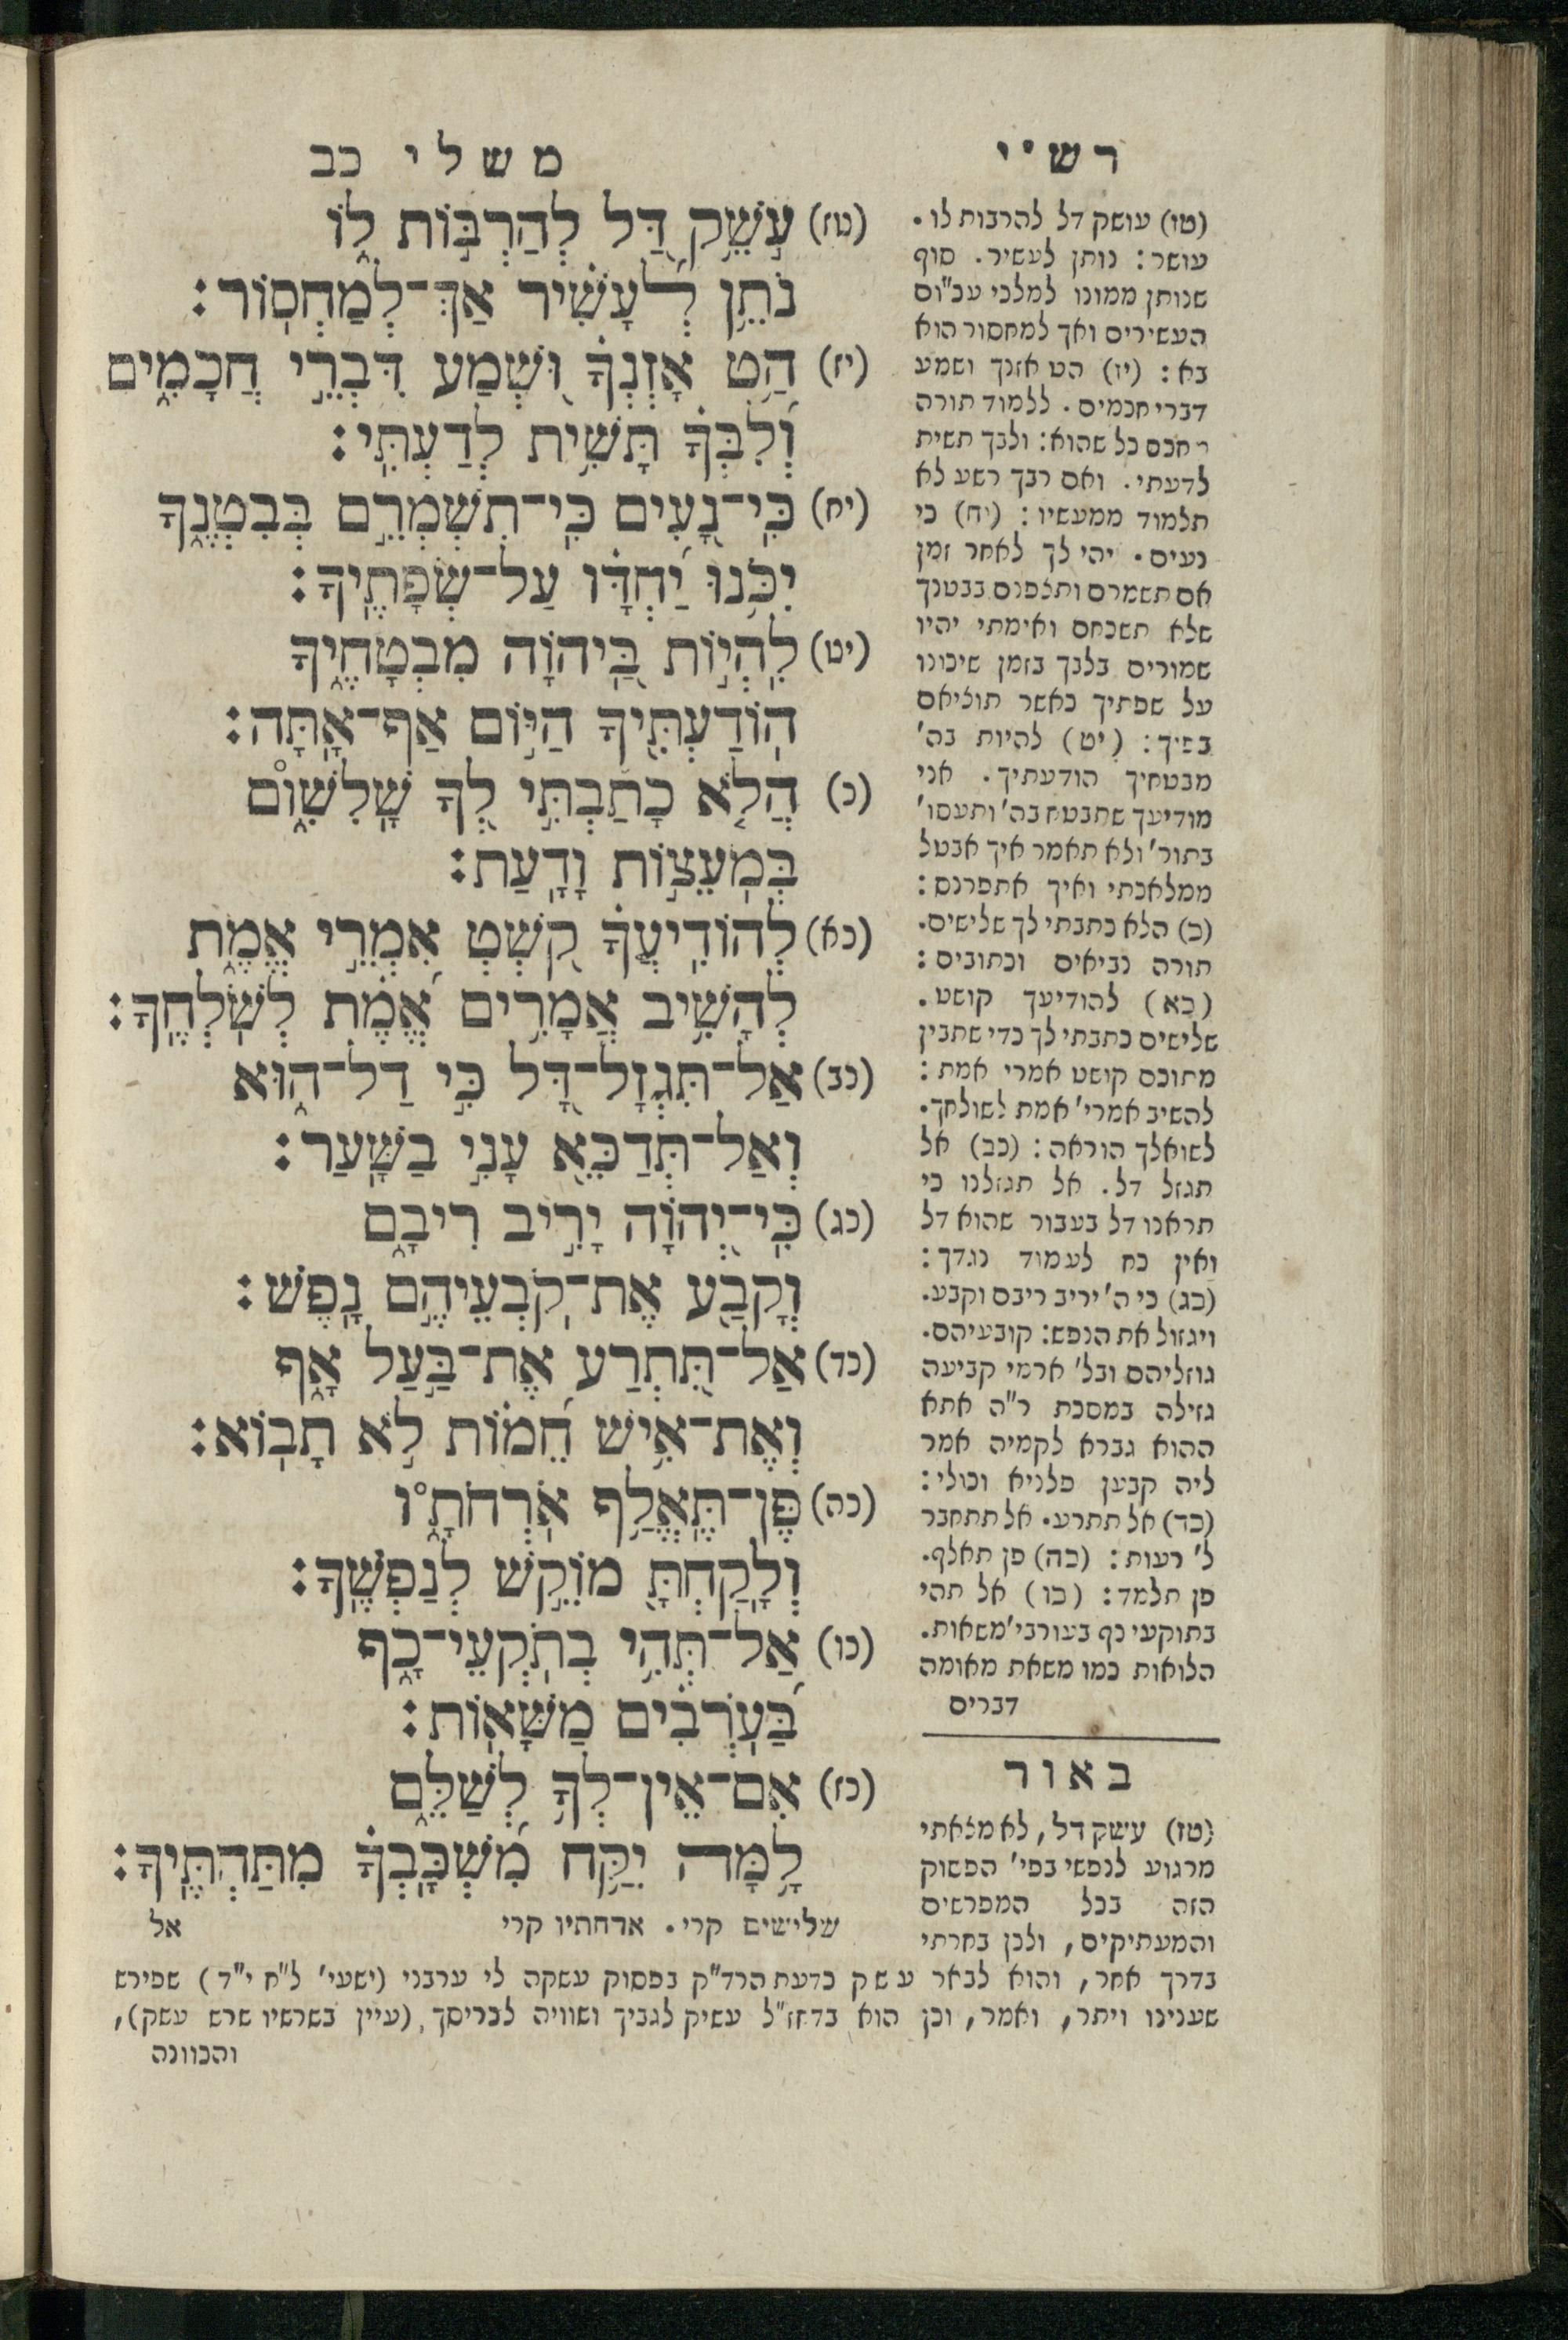 משלי כב
(טז) עֹ֣שֵֽׁק דָּ֭ל לְהַרְבּ֣וֹת ל֑וֹ
נֹתֵ֥ן לְ֝עָשִׁ֗יר אַךְ־לְמַחְסֽוֹר׃
(יז) הַ֥ט אָזְנְךָ֗ וּ֭שְׁמַע דִּבְרֵ֣י חֲכָמִ֑ים
וְ֝לִבְּךָ֗ תָּשִׁ֥ית לְדַעְתִּֽי׃
(יח) כִּֽי־נָ֭עִים כִּֽי־תִשְׁמְרֵ֣ם בְּבִטְנֶ֑ךָ
יִכֹּ֥נוּ יַ֝חְדָּ֗ו עַל־שְׂפָתֶֽיךָ׃
(יט) לִֽהְי֣וֹת בַּֽ֭יהוָֹה מִבְטָחֶ֑יךָ
הֽוֹדַעְתִּ֖יךָ הַיּ֣וֹם אַף־אָֽתָּה׃
(כ) הֲלֹ֤א כָתַ֣בְתִּי לְ֭ךָ שָֽׁלִשֹׁ֑וֹם
בְּמֽוֹעֵצ֣וֹת וָדָֽעַת׃
(כא) לְהוֹדִֽיעֲךָ֗ קֹ֭שְׁטְ אִמְרֵ֣י אֱמֶ֑ת
לְהָשִׁ֥יב אֲמָרִ֥ים אֱ֝מֶ֗ת לְשֹֽׁלְחֶֽךָ׃
(כב) אַל־תִּגְזָל־דָּ֭ל כִּ֣י דַל־ה֑וּא
וְאַל־תְּדַכֵּ֖א עָנִ֣י בַשָּֽׁעַר׃
(כג) כִּֽי־יְ֭הוָֹה יָרִ֣יב רִיבָ֑ם
וְקָבַ֖ע אֶת־קֹֽבְעֵיהֶ֣ם נָֽפֶשׁ׃
(כד) אַל־תִּ֭תְרַע אֶת־בַּ֣עַל אָ֑ף
וְאֶת־אִ֥ישׁ חֵ֝מ֗וֹת לֹ֣א תָבֽוֹא׃
(כה) פֶּן־תֶּֽאֱלַ֥ף אֹֽרְחֹתָ֑ו
וְלָֽקַחְתָּ֖ מוֹקֵ֣שׁ לְנַפְשֶֽׁךָ׃
(כו) אַל־תְּהִ֥י בְתֹֽקְעֵי־כָ֑ף
בַּ֝עֹֽרְבִ֗ים מַשָּׁאֽוֹת׃
(כז) אִם־אֵין־לְךָ֥ לְשַׁלֵּ֑ם
לָ֥מָּה יִקַּ֥ח מִ֝שְׁכָּֽבְךָ֗ מִתַּחְתֶּֽיךָ׃
שלישים קרי. ארחתיו קרי
אל
רש״י
(טז) עושק דל להרבות לו.
עושר: נותן לעשיר. סוף
שנותן ממונו למלכי עכ"ום
העשירים ואך למחסור הוא
בא: (יז) הט אזנך ושמע
דברי חכמים. ללמוד תורה
מחכם כל שהוא: ולבך תשית
לדעתי. ואם רבך רשע לא
תלמוד ממעשיו: (יח) כי
נעים. יהי לך לאחר זמן
אם תשמרם ותצפנם בבטנך
שלא תשכחם ואימתי יהיו
שמורים בלבך בזמן שיכונו
על שפתיך כאשר תוציאם
בפיך: (יט) להיות בה'
מבטחיך הודעתיך. אני
מודיעך שתבטח בה' ותעסו'
בתור' ולא תאמר איך אבטל
ממלאכתי ואיך אתפרנס:
(כ) הלא כתבתי לך שלישים.
תורה נביאים וכתובים:
(כא) להודיעך קושט.
שלישים כתבתי לך כדי שתבין
מתוכם קושט אמרי אמת:
להשיב אמרי' אמת לשולחך.
לשואלך הוראה: (כב) אל
תגזל דל. אל תגזלנו כי
תראנו דל בעבור שהוא דל
ואין כח לעמוד נגדך:
(כג) כי ה' יריב ריבם וקבע.
ויגזול את הנפש: קובעיהם.
גוזליהם ובל' ארמי קביעה
גזילה במסכת ר"ה אתא
ההוא גברא לקמיה אמר
ליה קבען פלניא וכולי:
(כד) אל תתרע. אל תתחבר
ל' רעות: (כה) פן תאלף.
פן תלמד: (כו) אל תהי
בתוקעי כף בעורבי' משאות.
הלואות כמו משאת מאומה
דברים
באור
(טז) עשק דל, לא מצאתי
מרגוע לנפשי בפי' הפסוק
הזה בכל המפרשים
והמעתיקים, ולכן בחרתי
בדרך אחר, והוא לבאר עשק כדעת הרד"ק בפסוק עשקה לי ערבני (ישעי' ל"ח י"ד) שפירש
שענינו ויתר, ואמר, וכן הוא בדחז"ל עשיק לגביך ושוויה לכריסך, (עיין בשרשיו שרש עשק),
והכוונה